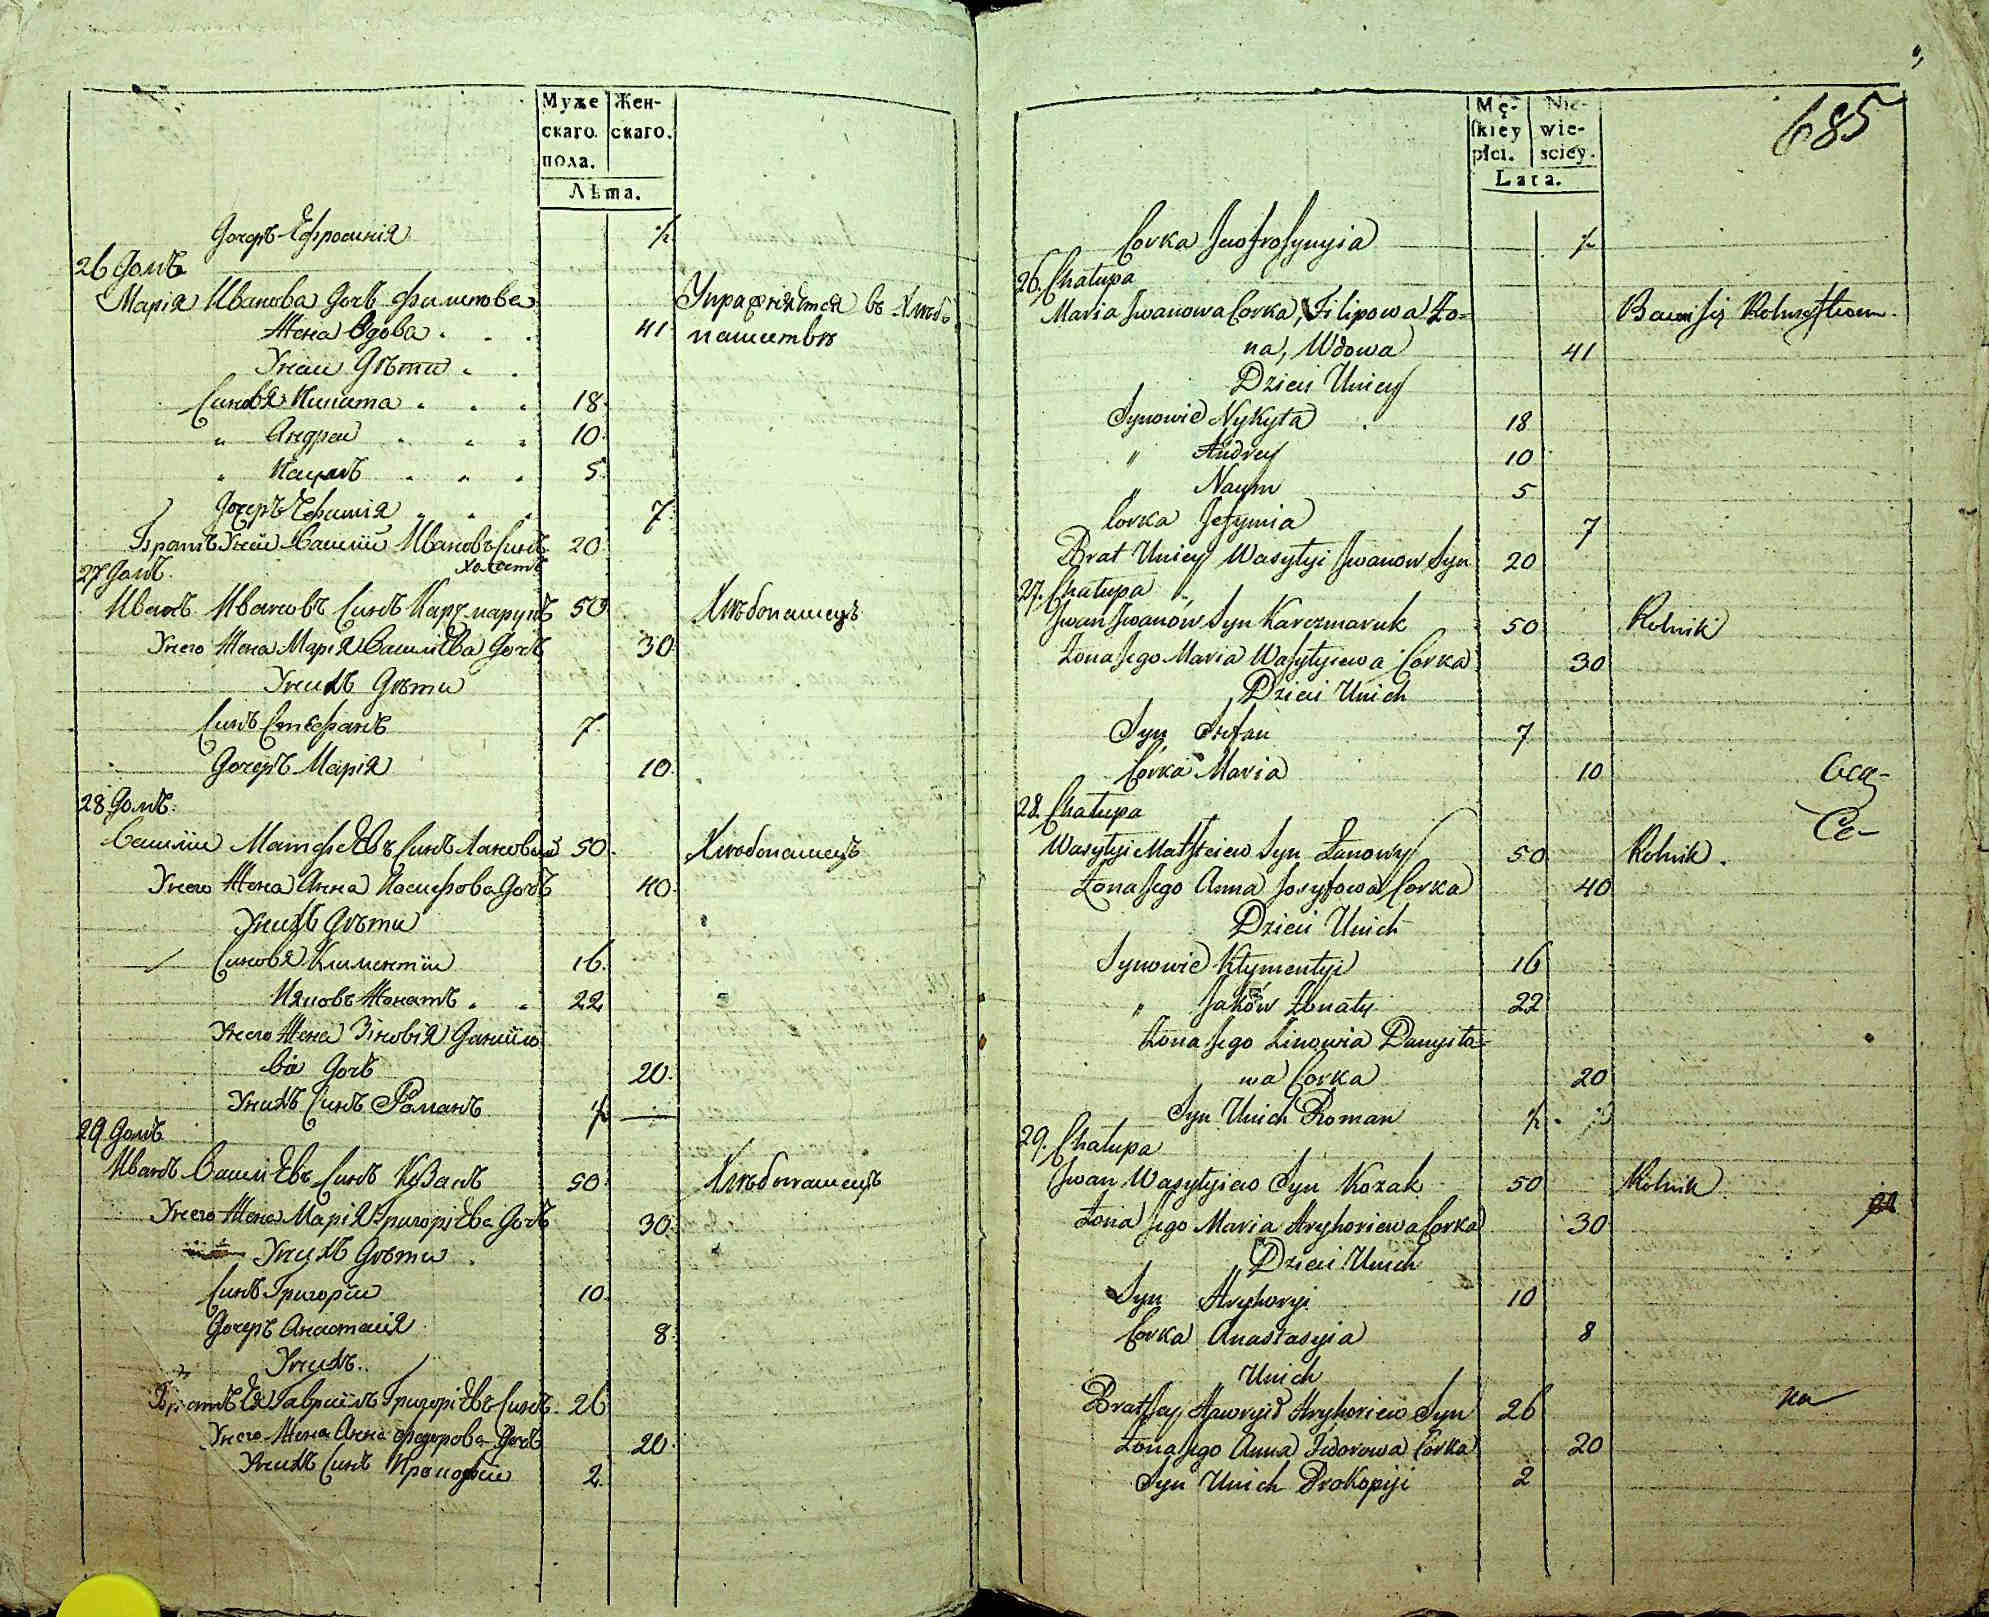 Муже
скаго
пола.
Жен-
скаго.
Лѣта.
Дочерь Ефросинія ½
26 Домъ
Марія Иванова Дочь Филипова Упражняется въ Хлѣбо
Жена Вдова 41 пашествѣ
У неи Дѣти
Синовя Никита 18
" Андреи 10
" Наумъ 5
Дочерь Ефимія 7
Братъ Унеи Василіи Ивановъ Синъ 20
Холостъ
27 Домъ.
Иванъ Ивановъ Синъ Карчмарукъ 50 Хлѣбопашецъ
Унего Жена Марія Василіева Дочь 30
Унихъ Дѣти
Синъ Стефанъ 7
Дочерь Марія 10
28 Домъ.
Василіи Матфѣевъ Синъ Лановый 50 Хлѣбопашецъ
Унего Жена Анна Иосифова Дочь 40
Унихъ Дѣти
Синовя Климентіи 16
Яковъ Женатъ 22
Унего Жена Зіновія Даниило
ва Дочь 20
Унихъ Синъ Романъ ½ —
29 Домъ
Иванъ Василіевъ Синъ Козакъ 50 Хлѣбопашецъ
Унего Жена Марія Григоріева Дочь 30
Унихъ Дѣти
Синъ Григоріи 10
Дочерь Анастасія 8
Унихъ
Братъ Ея Гавриилъ Григоріевъ Синъ 26
Унего Жена Анна Федорова Дочь 20
Унихъ Синъ Прокофіи 2
Mę-
skiey
płci.
Nie-
wie-
sciey.
Lata.
685
Corka Jeofrosynyia ½
26. Chałupa
Maria Jwanowa Corka, Filipowa Żo- Bawi się Rolnictwem
na, Wdowa 41
Dzieci Uniey
Synowie Nykyta 18
" Andrey 10
" Naum 5
Corka Jefymia 7
Brat Uniey Wasylyi Jwanow Syn 20
27. Chałupa
Jwan Jwanów Syn Karczmaruk 50 Rolnik
Żona Jego Maria Wasylyiewa Corka 30
Dzieci Unich
Syn Stefan 7
Córka Maria 10
28. Chałupa
Wasylyi Matfieiew Syn Łanowy 50 Rolnik.
Żona Jego Anna Josyfowa Corka 40
Dzieci Unich
Synowie Kłymentyi 16
" Jaków Żonaty 22
Żona Jego Zinowia Danyło-
wa Corka 20
Syn Unich Roman ½
29. Chałupa
Jwan Wasylyiew Syn Kozak 50 Rolnik
Żona Jego Maria Hryhoriewa Corka 30
Dzieci Unich
Syn Hryhoryi 10
Corka Anastasyia 8
Unich
Brat Jey Hawryił Hryhoriew Syn 26
Żona Jego Anna Fedorowa Córka 20
Syn Unich Prokopiji 2
Се-
на